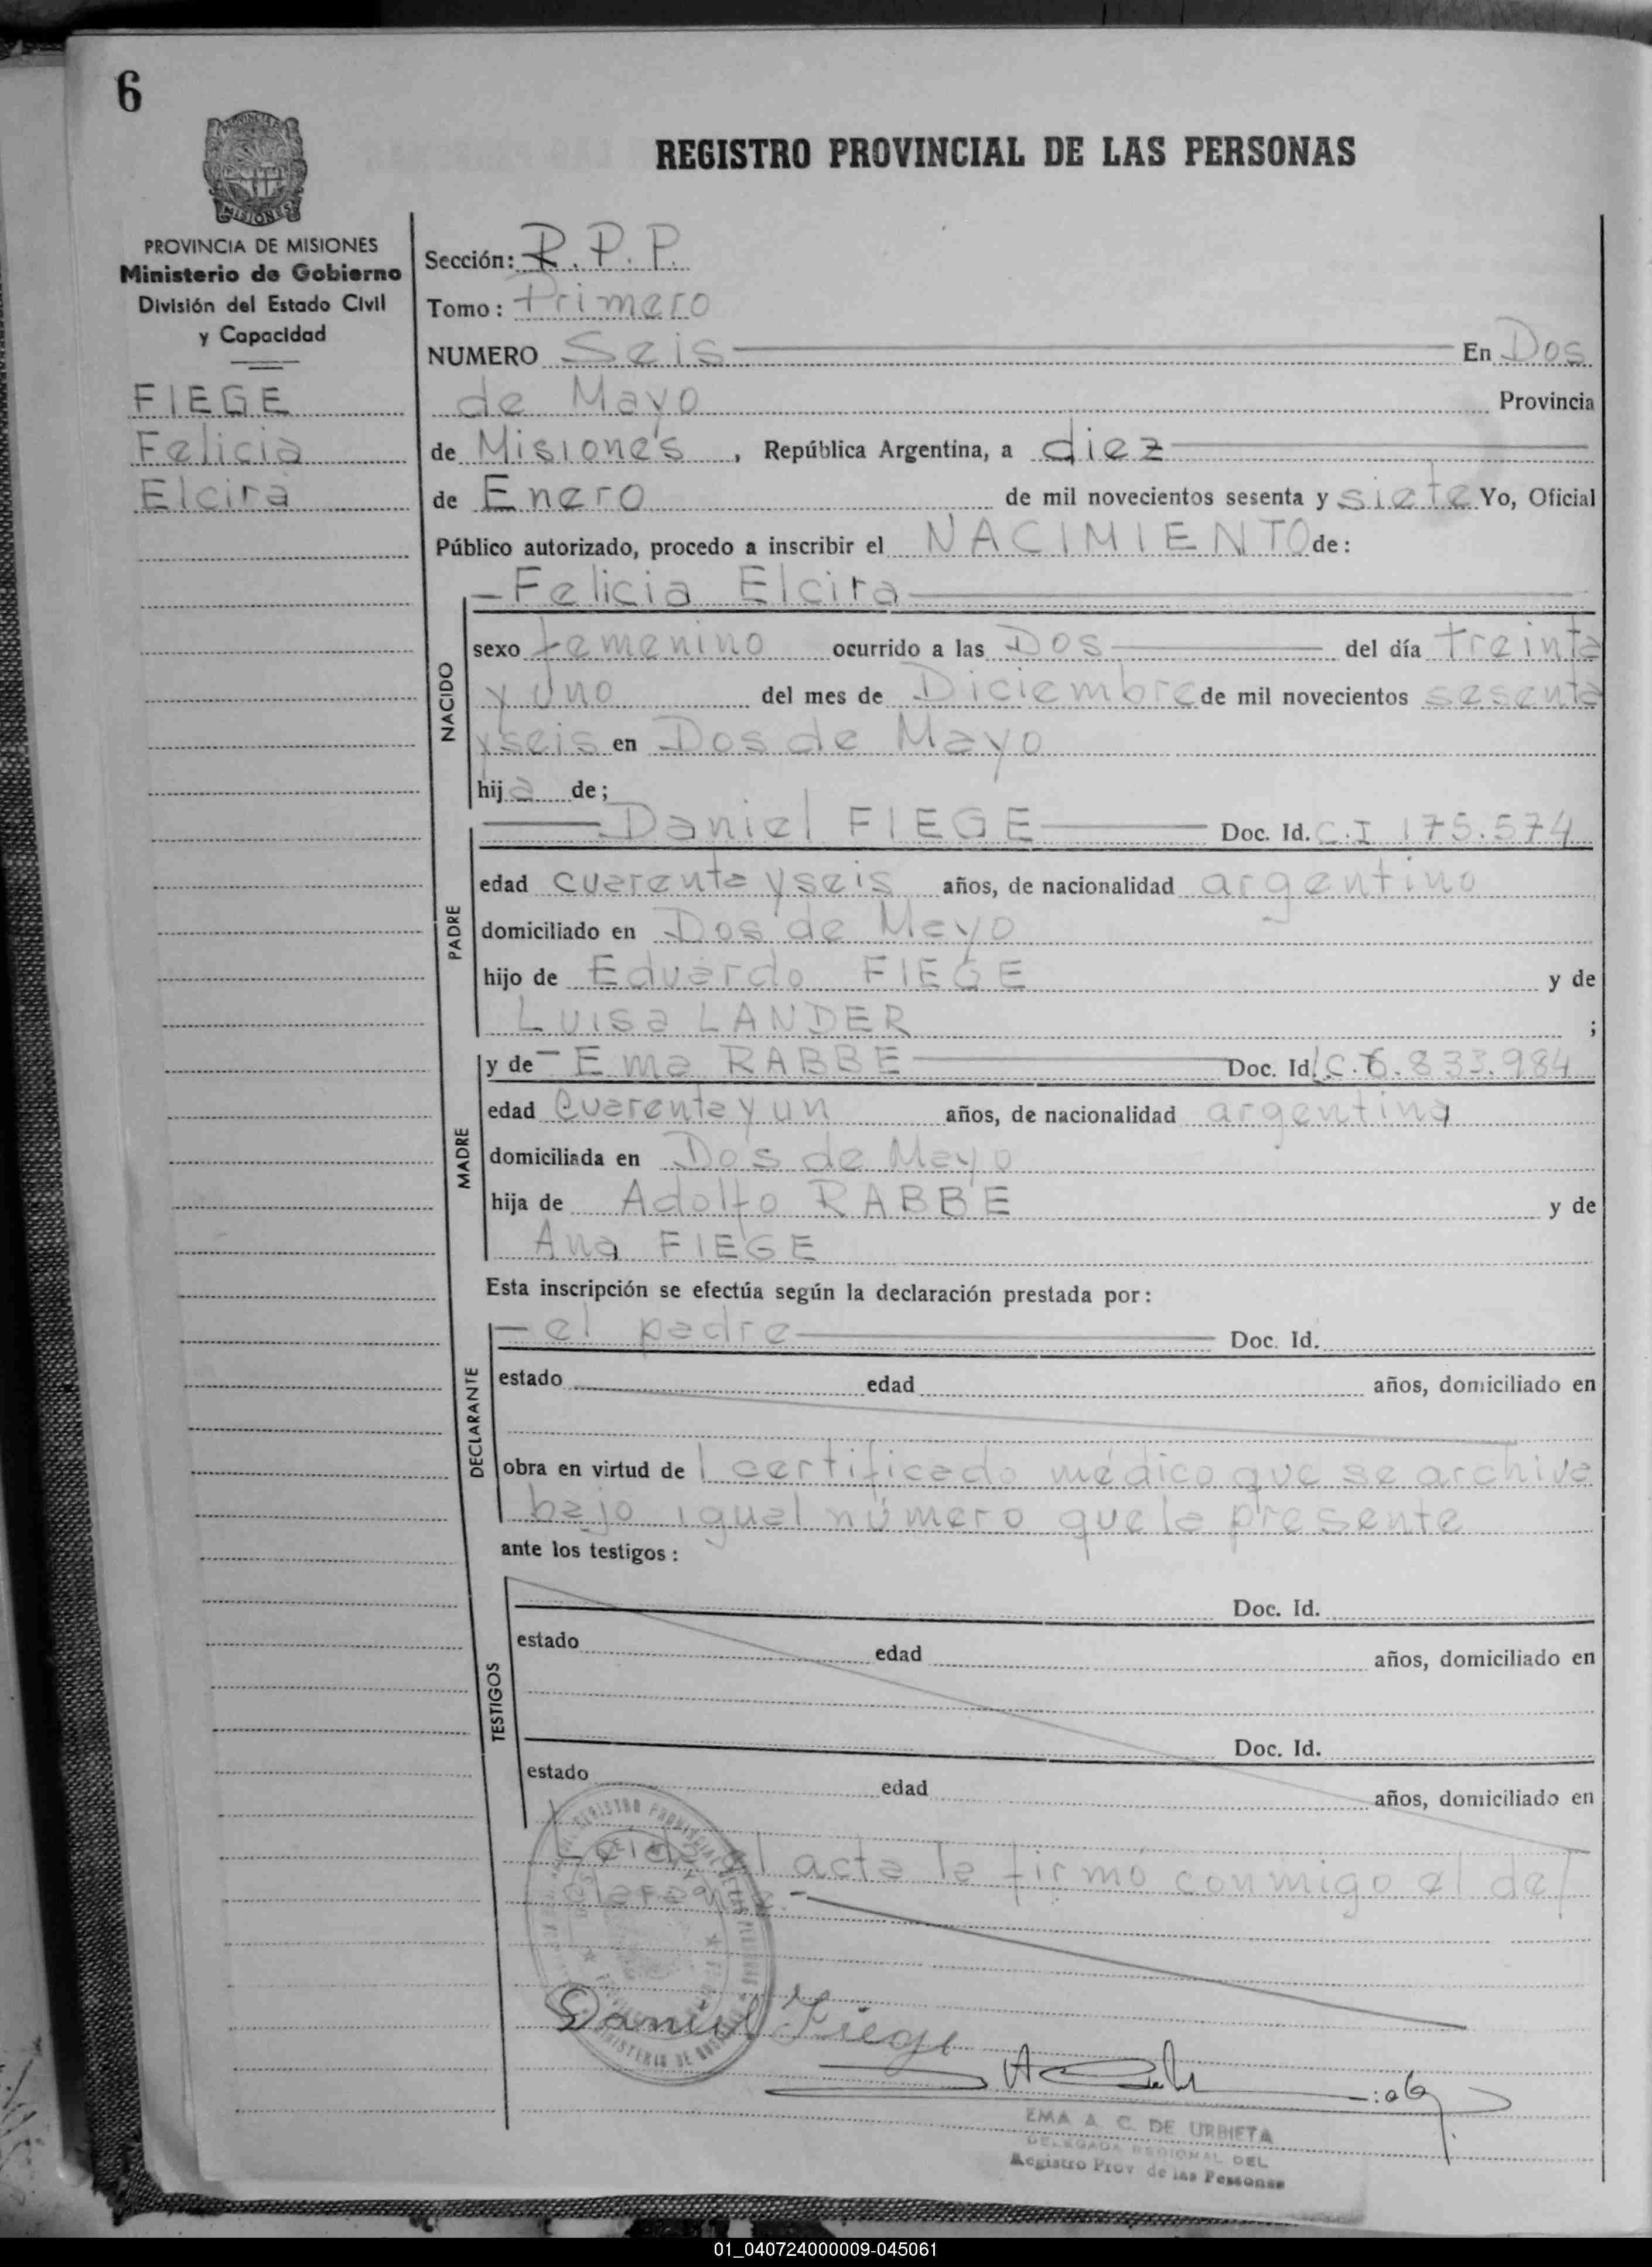 6
REGISTRO PROVINCIAL DE LAS PERSONAS
MISIONES
PROVINCIA DE MISIONES
Ministerio de Gobierno
División del Estado Civil
y Capacidad
FIEGE
Felicia
Elcira
Sección: R.P.P.
Tomo: Primero
NUMERO Seis En Dos
de Mayo Provincia
de Misiones, República Argentina, a diez
de Enero de mil novecientos sesenta y siete Yo, Oficial
Público autorizado, procedo a inscribir el NACIMIENTO de:
NACIDO
- Felicia Elcira
sexo femenino ocurrido a las Dos del día treinta
y uno del mes de Diciembre de mil novecientos sesenta
y seis en Dos de Mayo
hija de;
PADRE
Daniel FIEGE Doc. Id. C.I 175.574
edad cuarenta y seis años, de nacionalidad argentino
domiciliado en Dos de Mayo
hijo de Eduardo FIEGE y de
Luisa LANDER ;
MADRE
y de - Ema RABBE Doc. Id L.C.6.833.984
edad Cuarenta y un años, de nacionalidad argentina
domiciliada en Dos de Mayo
hija de Adolfo RABBE y de
Ana FIEGE
Esta inscripción se efectúa según la declaración prestada por:
DECLARANTE
- el padre Doc. Id.
estado edad años, domiciliado en
obra en virtud del certificado médico que se archiva
bajo igual número que la presente
ante los testigos:
TESTIGOS
Doc. Id.
estado edad años, domiciliado en
Doc. Id.
estado edad años, domiciliado en
Leida el acta la firmó conmigo el de
clarante.-
Daniel Fiege
EMA A. C. DE URBIETA
DELEGADA REGIONAL DEL
Registro Prov de las Personas
01_040724000009-045061